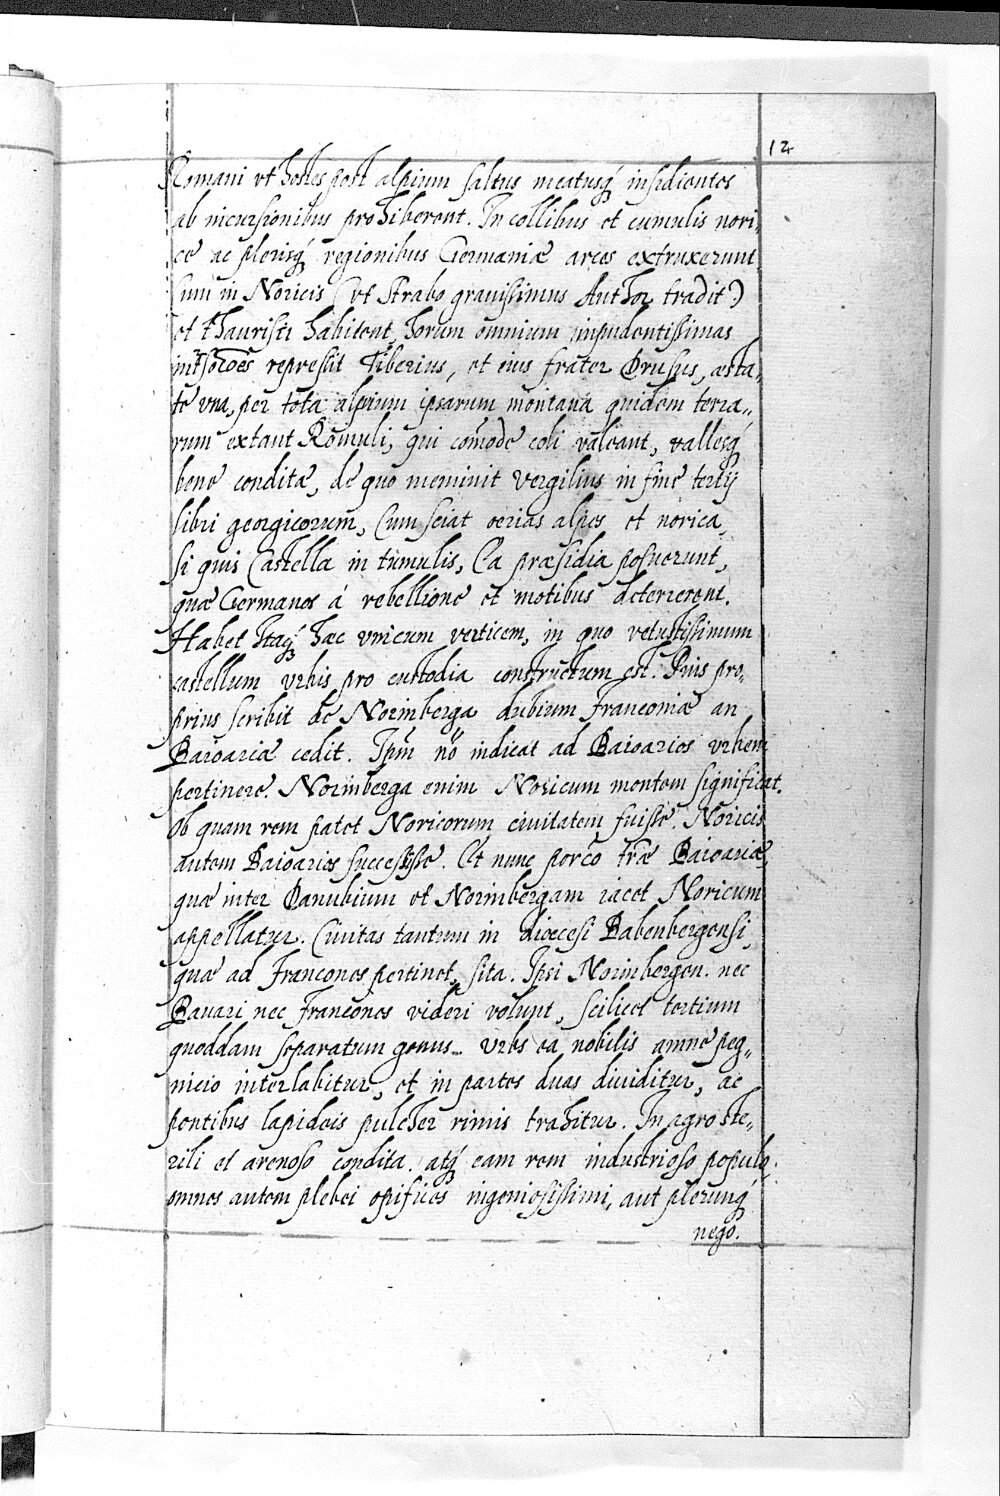 12
Romani vt hostes post alpium saltus meatusq́ insidientes
ab incursionibus prohiberent. In collibus et cumulis nori,,
ce ac plerisq́ regionibus Germaniæ arces extruxerunt
sunt in Noricis (vt Strabo grauissimus Author tradit)
et thauristi habitent, horum omnium inpudentissimas
repressit Tiberius, et eius frater Drusus, æsta,,
te vna, per totā alpium ipsarum montana quidem terra,,
rum extant Romuli, qui com̄ode coli valeant, vallesq́
bene conditæ, de quo meminit Vergilius in fine tertij
libri georgicorum, Cum sciat oerias alpes et norica,
si quis Castella in tumulis, Ea præsidia posuerunt,
quæ Germanos á rebellione et motibus deterrerent.
Habet Itaq́ hæc vnicum verticem, in quo vetustissimum
castellum vrbis pro custodia constructum est. Pius pro,,
prius scribit de Norinberga dubium Franconiæ an
Baioariæ cedit. Ipm̄ nō indicat ad Baioarios vrbem
pertinere. Norinberga enim Noricum montem significat.
Ob quam rem patet Noricorum ciuitatem fuisse. Noricis
autem Baioarios successisse. Et nunc porčo trǣ Baioariæ,
quæ inter Danubium et Norinbergam iacet Noricum
appellatur. Ciuitas tantum in diœcesi Babenbergensi,
quæ ad Francones pertinet, sita. Ipsi Norinbergen. nec
Bauari nec Francones videri volunt, scilicet tertium
quoddam separatum genus. Vrbs ea nobilis amne peg,,
nicio interlabitur, et in partes duas diuiditur, ac
pontibus lapideis pulcher rimis trahitur. In agro ste,,
rili et arenoso condita. atq́ eam rem industrioso populo.
omnes autem plebei opifices ingeniosissimi, aut plerunq́
nego.